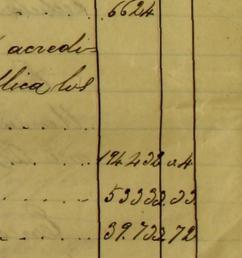 6624
acredi-
blica los
194.432 04
53332.33
39.732,72